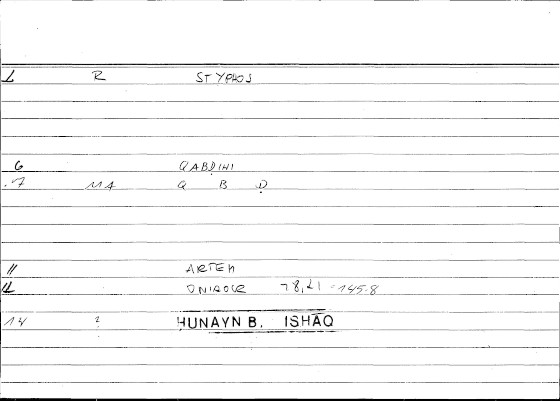 1 R STYPHOS
6 QABḌIHI
7 MA Q B Ḍ
11 ARTEM
12 ONIROCR 78,21 = 145.8
14 ? HUNAYN B. ISHĀQ